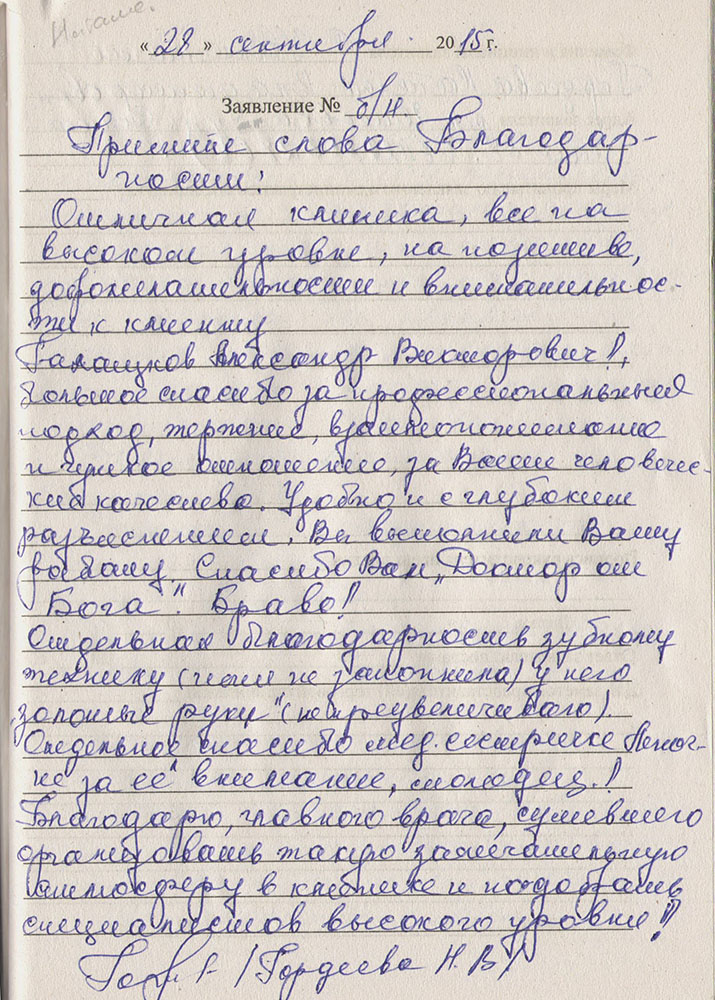 Наташе.
«28» сентября. 2015 г.
Заявление № б/н.
Примите слова Благодар-
ности!
Отличная клиника, все на
высоком уровне, на позитиве,
доброжелательности и внимательнос-
ти к клиенту
Галашуков Александр Викторович!,
большое спасибо за профессиональный
подход, терпение, взаимопонимание
и чуткое отношение, за Ваши человечес-
кие качества. Удобно и с глубоким
разъяснением. Вы выполнили Вашу
работу. Спасибо Вам, „Доктор от
Бога". Браво!
Отдельная благодарность зубному
технику (имя не запомнила) у него
„золотые руки" (не преувеличиваю).
Отдельное спасибо мед. сестричке
за её внимание, молодец.!
Благодарю, главного врача, сумевшего
организовать такую замечательную
атмосферу в клинике и подобрать
специалистов высокого уровня!!
/Гордеева Н. В/